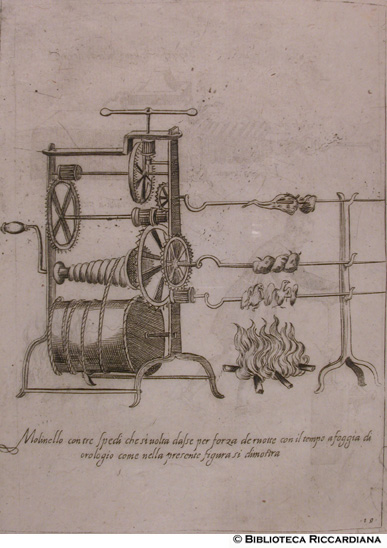 Molinello con tre spedi che si volta da sse per forza de ruotte con il tempo a foggia di
orologio come nella presente figura si dimostra
© BIBLIOTECA RICCARDIANA